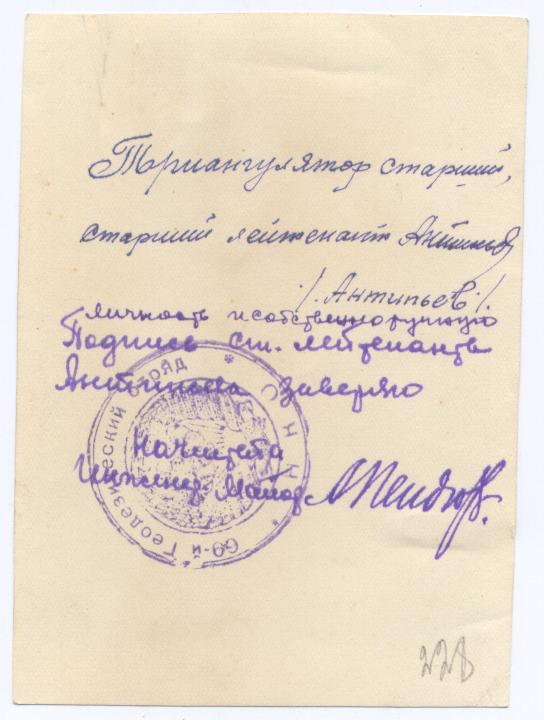 Триангулятор старший,
старший лейтенант
/Антипьев/.
личность и собственноручную
Подпись ст. лейтенанта
Антипьева заверяю
Начштаба
Инженер-Майор
69-й Геодезический отряд
228